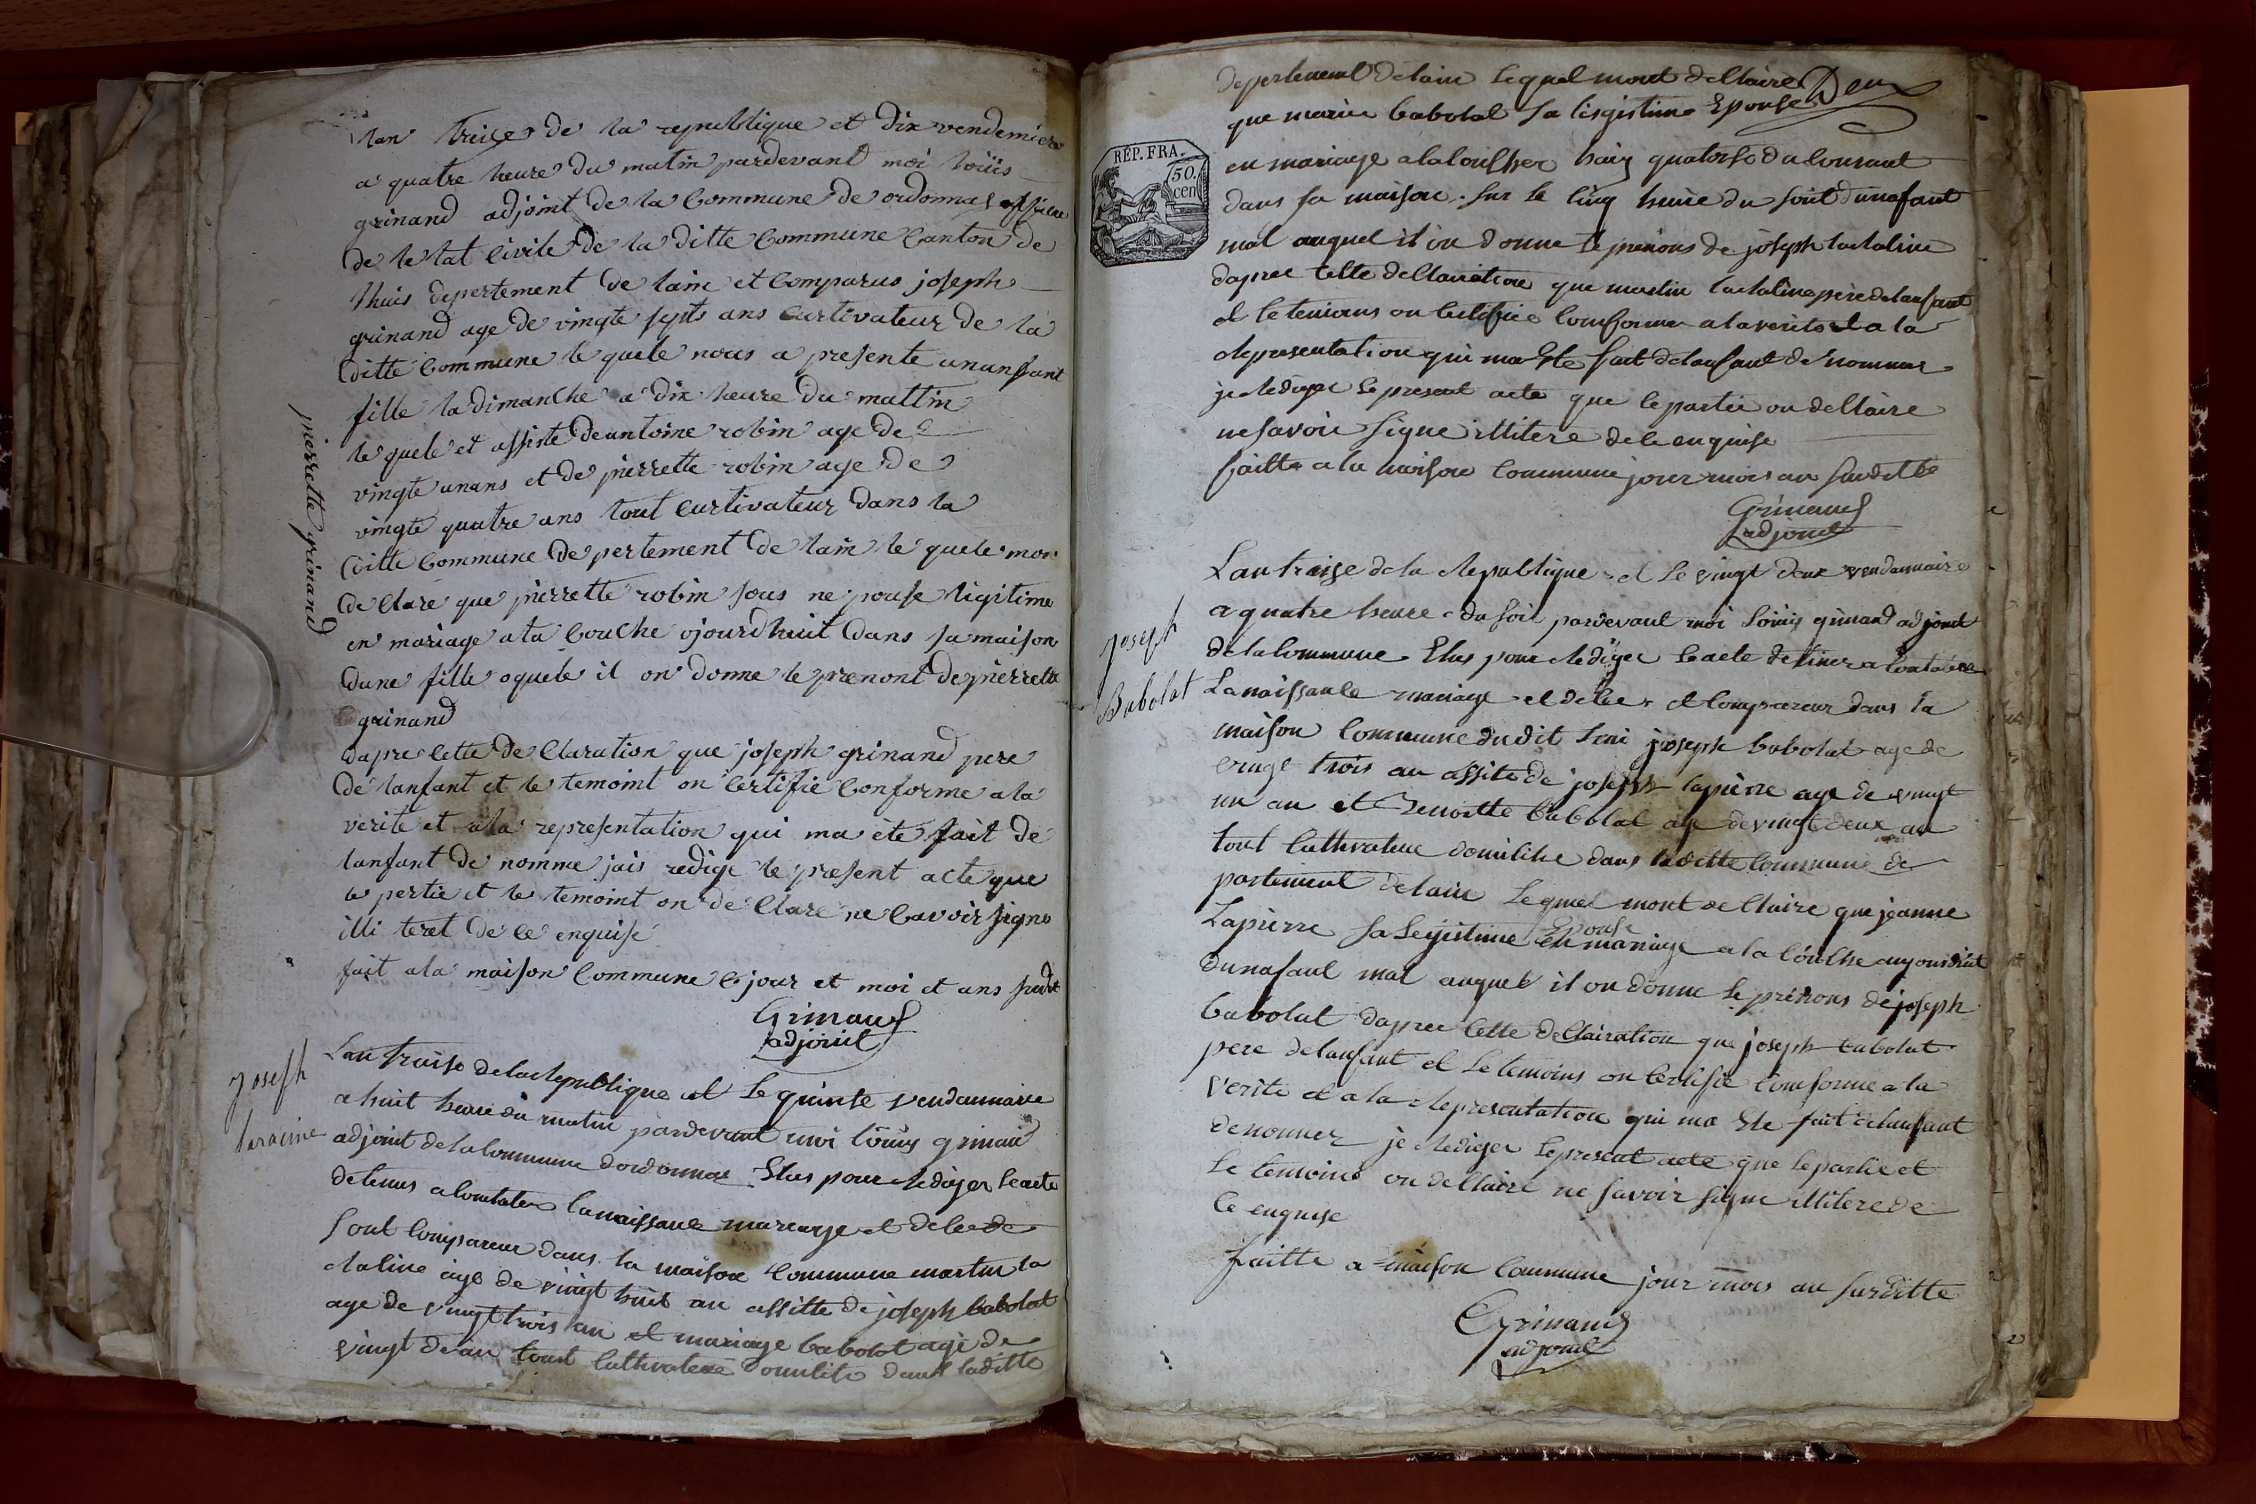 lan treize de la republique et dix vendemiere
a quatre heure du matin pardevant moi loüis
grinand adjoint de la Commune de ordonnas officie
de le tat Civile de la ditte Commune Canton de
lhuis depertement de lain et Comparus joseph
grinand age de vingte septs ans Curtivateur de la
ditte Commune le quele nous a presente unanfant
fille la dimanche a dix heure du mattin
le quele et assiste deantoine robin age de
vingte unans et de pierrette robin age de
vingte quatre ans tout Curtivateur dans la
ditte Commune de pertement de lain le quele mon
de Clare que pierrette robin sous ne pouse ligitime
en mariage ala Couche ojourdhuit dans sa maison
dune fille oquele il on donne le prenont de pierrette
grinand
dapre Cette de Claration que joseph grinand pere
de lanfant et le temoint on Certifie Conforme ala
verite et ala representation qui ma ete fait de
lanfant de nomme jais redige le present acte que
le pertie et le temoint on de Clare ne Savoir signe
illi teret de ce enquise
fait ala maison Commune le jour et moi et ans sudit
Grinand
adjoint
pierrette grinand
Joseph
laracine
Lan traise dela Republique et le quinte vendanmaire
a huit heure du matin pardevant moi loüis grinand
adjoint dela Commune dordonnas Elus pour Rediger leacte
detenus a Contater lanaissance mareage et dele de
sont Compareur dans la maison Commune martin la
claline age de vingt huit an assitte de joseph babolat
age de vingt trois an et mariage babolat age de
vingt de an tout Cultivateur domilite dans laditte
depertement delain Lequel mont declaire Deux
que marie babolat sa lisgistime Epouse
REP. FRA.
50.
cen
en mariage alacoulher haiz quatorse du Courant
dans sa maison. sur le Cinq heure du soit dunafant
mal auquel il on donne le prenons de joseph laclaline
dapree Cette declaration que martin laclaline pere delanfant
et le temoins on Certifie Comforme alaverite et a la
Representation qui ma Ete fait delanfant de nommer
je Rediger le present acte que le partie on declaire
ne savoir signe illitere de le enquise
faitte a la maison Commune jour mois an susditte
Grinand
adjoint
Joseph
Babolat
Lan traize dela Republique et le vingt deux vendanmaire
a quatre heure du soit pardevant moi Loüis grinand adjoint
dela Commune Elus pour Rediger leacte
Lanaissance mariage et dele et Compareur dans la
maison Commune dudit joseph babolat age de
vingt trois an assite de joseph lapierre age de vingt
un an et Benoitte babolat age devingt deux an
tout Cultivateur domilihe dans laditte Commune de
partement delain Lequel mont declaire que jeanne
Epouse
Lapierre sa Legistime en mariage a la Coulhe aujourdhuit
dunafant mal auquel il on donne le prenons de joseph
babolat dapree Cette declairation que joseph babolat
pere delanfant et Le temoins on Certifie Comforme a la
verite et a la Representation qui ma Ete fait delanfant
denommer je Rediger le present acte que le partie et
Le temoins on declaire ne savoir signe illitere de
Ce enquise
faitte a maison Commune jour mois an surditte
Grinand
adjoint